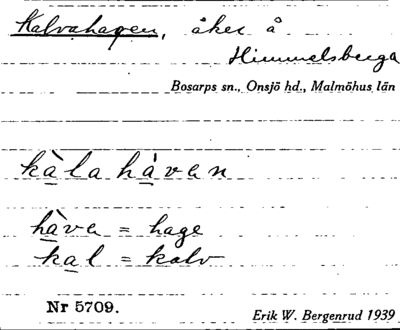 Kalvahagen, åker å
Himmelsberga
Bosarps sn., Onsjö hd., Malmöhus län
kàla hàven
hàve = hage
kal = kalv
Nr 5709.
Erik W. Bergenrud 1939